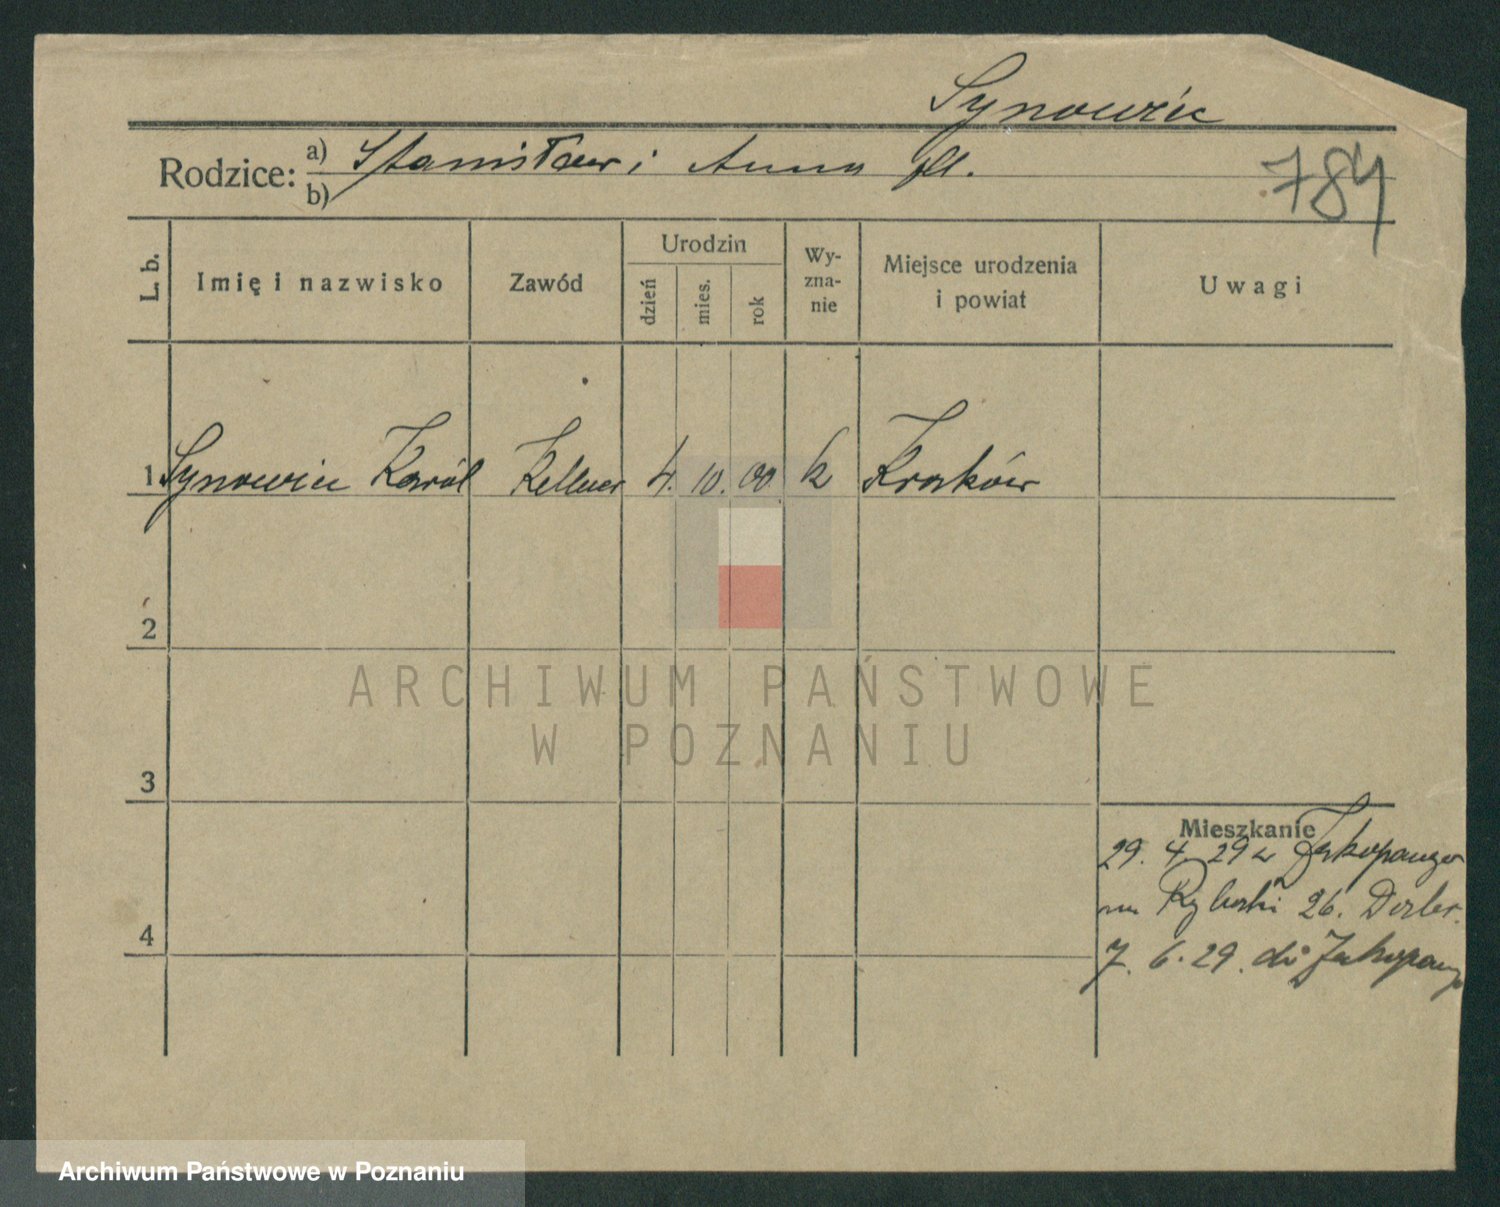 Synowiec
Rodzice: a) Stanisław i Anna
b)
784
L. b. Imię i nazwisko Zawód Urodzin dzień mies. rok Wy-zna-nie Miejsce urodzenia i powiat Uwagi
1 Synowiec Karól Kellner 4. 10. 00 k Kraków
2
3
4
Mieszkanie
29. 4. 29 z Zakopanego
na Rybaki 26.
7. 6. 29. do Zakopanego
ARCHIWUM PAŃSTWOWE
W POZNANIU
Archiwum Państwowe w Poznaniu